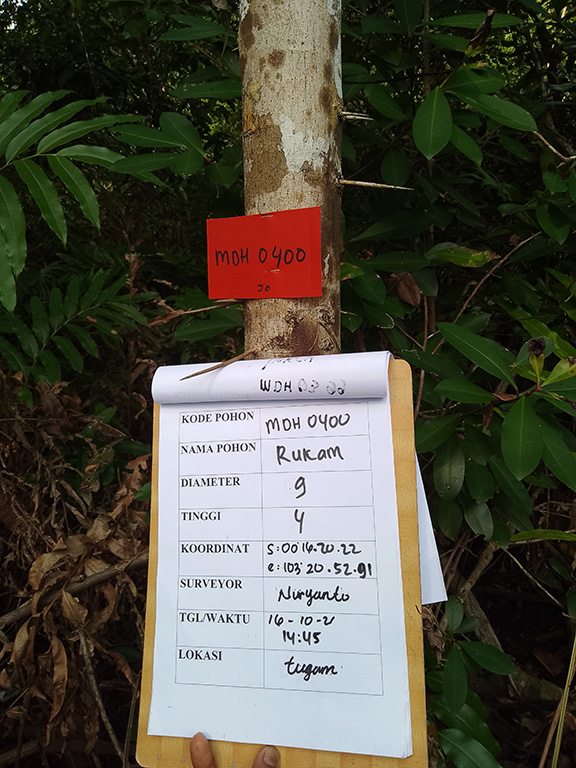 MDH 0400
JO
KODE POHON MDH 0400
NAMA POHON Rukam
DIAMETER 9
TINGGI 4
KOORDINAT S:00 16.20.22
e:103 20.52.91
SURVEYOR Nuryanto
TGL/WAKTU 16-10-21
14:45
LOKASI tugam